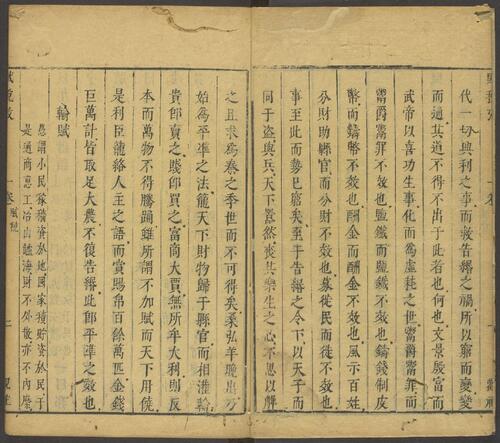 代一切與利之事而救告緡之禍所以窮而變變
而通其道不得不出于此者也何也文景殷富而
武帝以喜功生事化而為虛耗之世鬻爵鬻罪而
鬻爵鬻罪不效也鹽鐵而鹽鐵不效也鑄錢制皮
幣而鑄幣不效也酬金而酬金不效也風示百姓
分財助縣官而分財不效也募徙民而徙不效也
事至此而勢已窮矣至于告緡之令下以天子而
同于盜與兵天下囂然喪其樂生之心不思以解
之且求為秦之季世而不可得矣桑弘羊晚出乃
始為平準之法籠天下財物歸于縣官而相灌輸
貴即賣之賤即買之富商大賈無所牟大利則反
本而萬物不得騰踊雖所謂不加賦而天下用饒
是利臣籠絡人主之語而賞賜帛百餘萬匹金錢
巨萬計皆取足大農不復告緡此即平準之效也
輸賦
愚謂小民家積資於地國家積貯資於民于
是通商惠工冶山鹺海財不外散亦不內壅